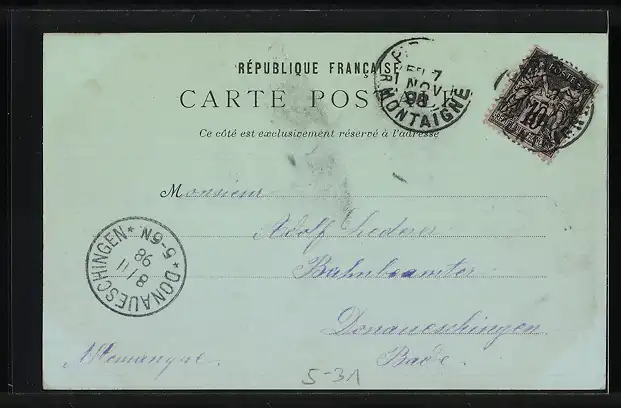 RÉPUBLIQUE FRANÇAISE
CARTE POSTALE
Ce côté est exclusivement réservé à l'adresse
Monsieur
Adolf Lederer
Bahnbeamter
Donaueschingen
Bade.
Allemangne.
5-31
7
NOV
98
R. MONTAIGNE
POSTES
DONAUESCHINGEN * 5-6N. *
8/11
98